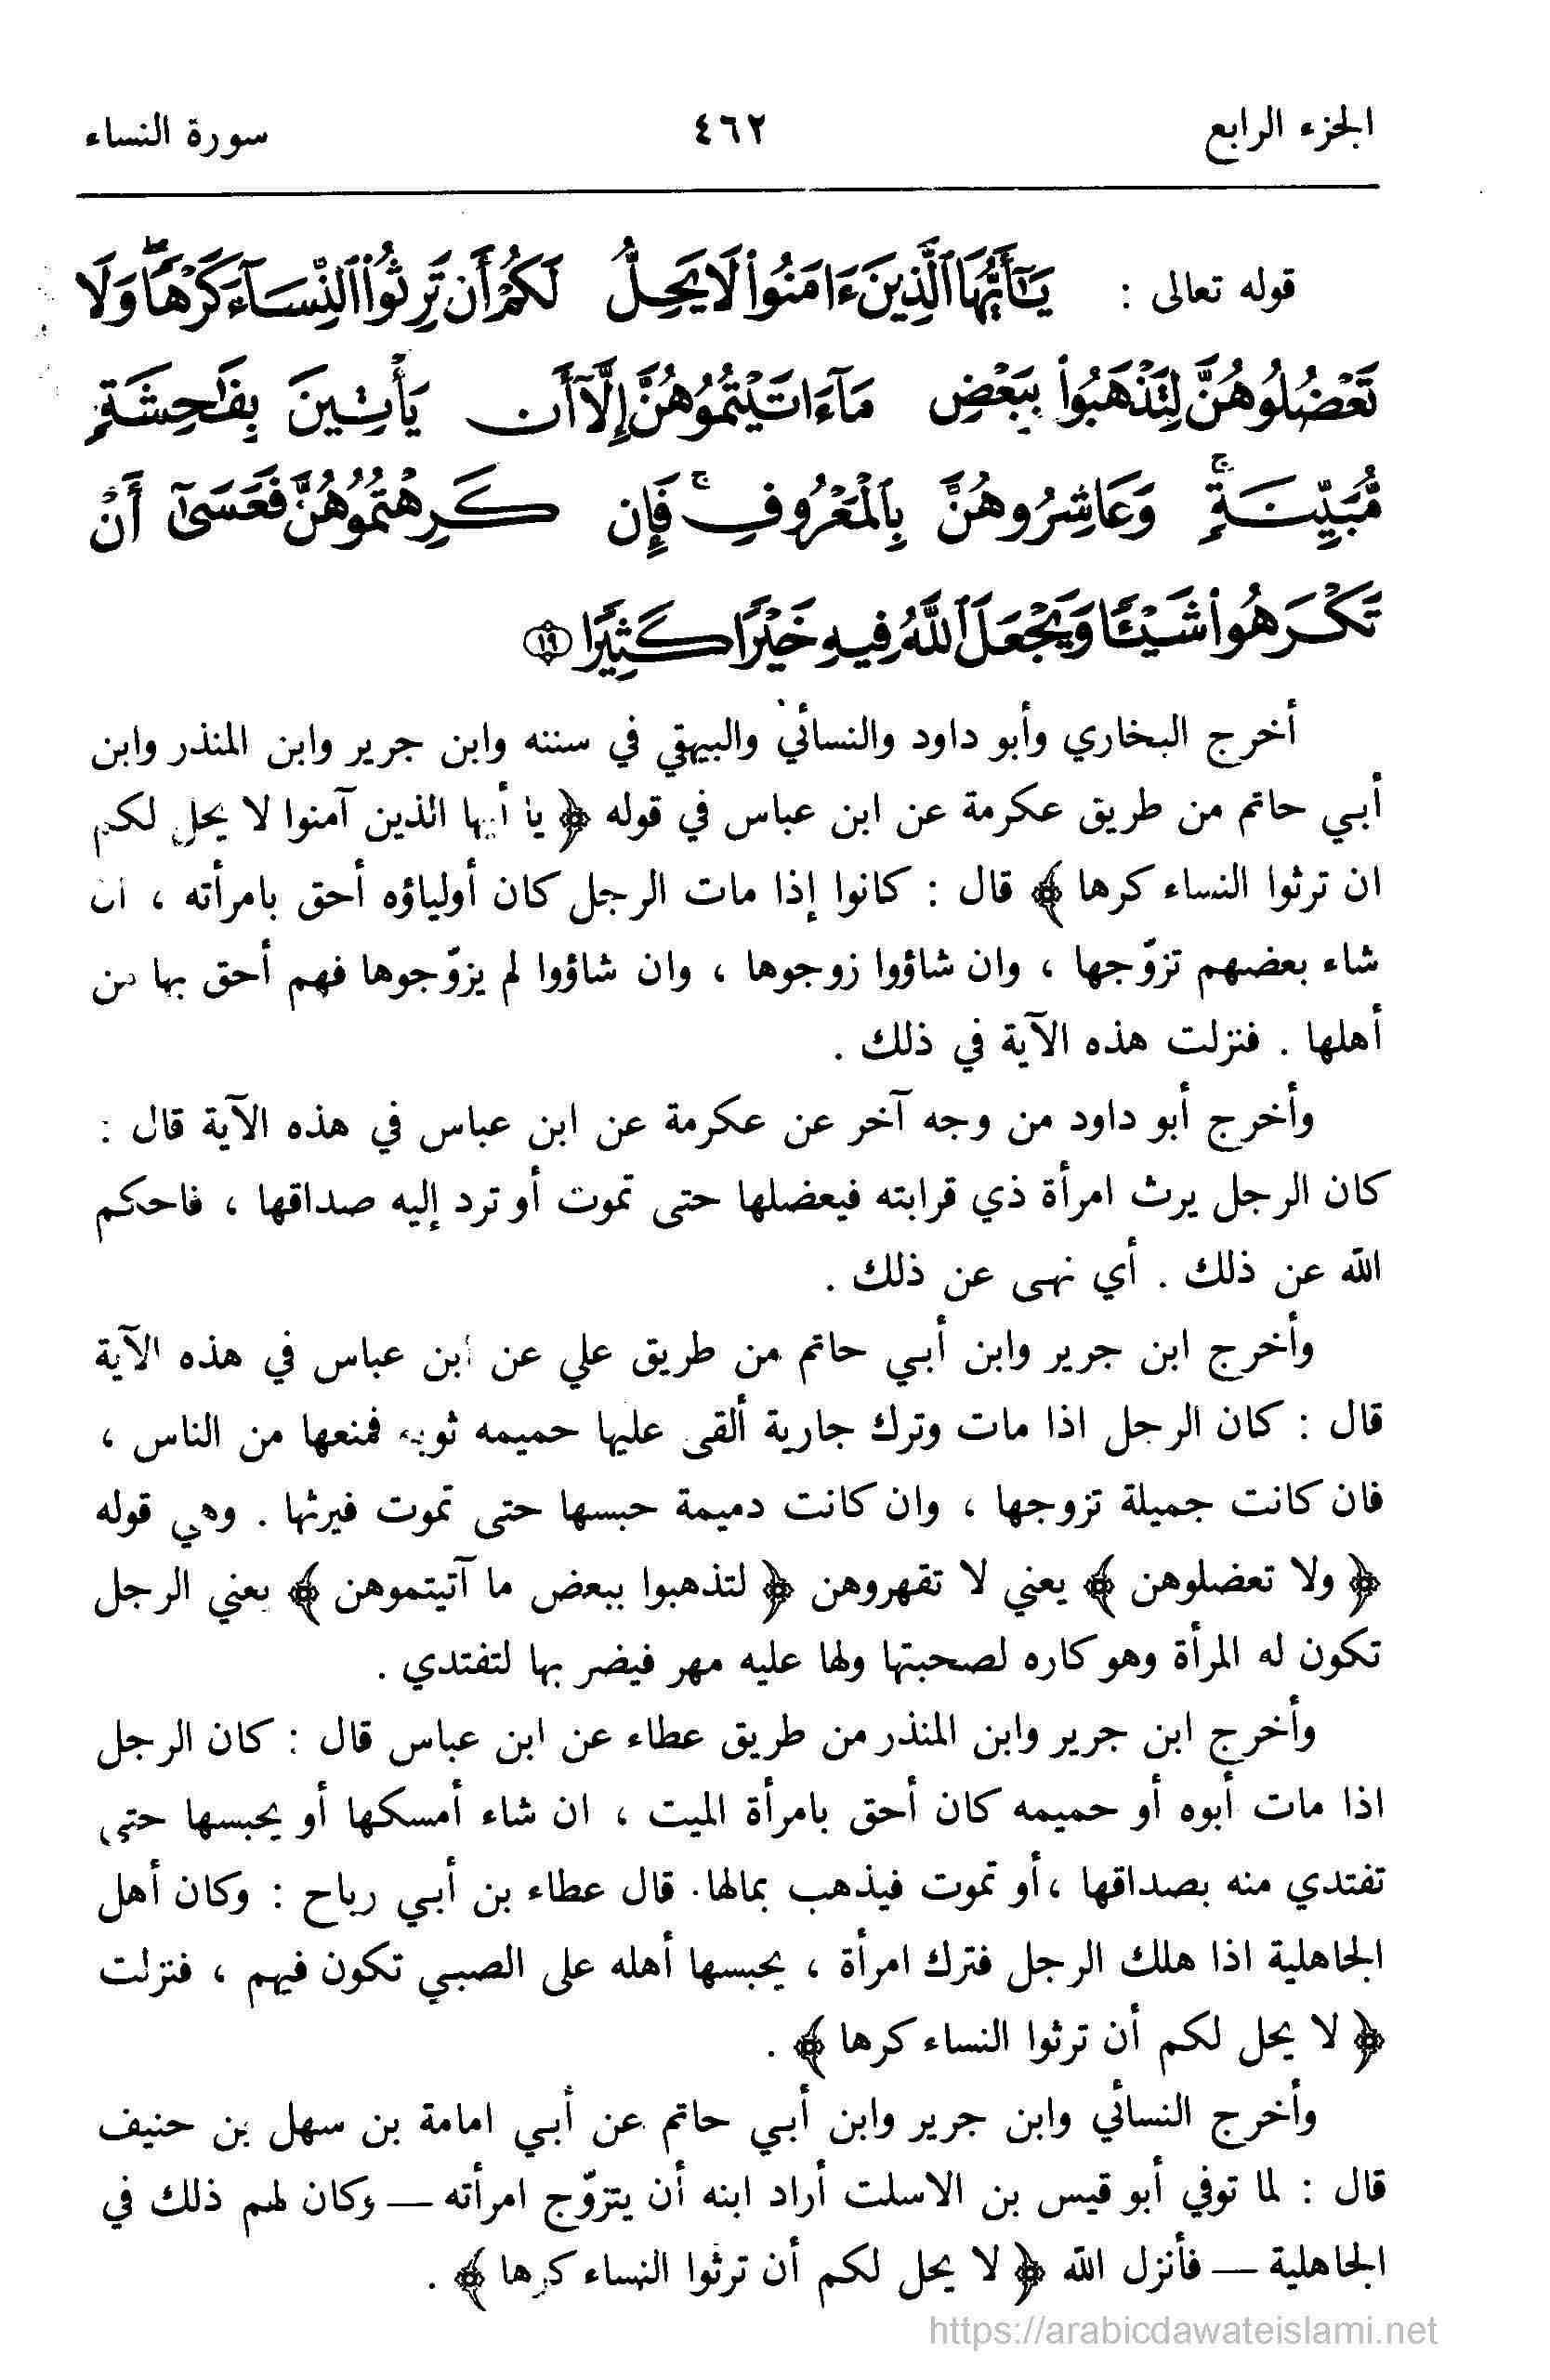 الجزء الرابع ٤٦٢ سورة النساء
قوله تعالى : يَٰٓأَيُّهَا ٱلَّذِينَ ءَامَنُوا۟ لَا يَحِلُّ لَكُمْ أَن تَرِثُوا۟ ٱلنِّسَآءَ كَرْهًا ۖ وَلَا
تَعْضُلُوهُنَّ لِتَذْهَبُوا۟ بِبَعْضِ مَآ ءَاتَيْتُمُوهُنَّ إِلَّآ أَن يَأْتِينَ بِفَٰحِشَةٍ
مُّبَيِّنَةٍ ۚ وَعَاشِرُوهُنَّ بِٱلْمَعْرُوفِ ۚ فَإِن كَرِهْتُمُوهُنَّ فَعَسَىٰٓ أَنْ
تَكْرَهُوا۟ شَيْـًٔا وَيَجْعَلَ ٱللَّهُ فِيهِ خَيْرًا كَثِيرًا ١٩
أخرج البخاري وأبو داود والنسائي والبيهقي في سننه وابن جرير وابن المنذر وابن
أبي حاتم من طريق عكرمة عن ابن عباس في قوله ﴿ يا أيها الذين آمنوا لا يحل لكم
ان ترثوا النساء كرها ﴾ قال : كانوا إذا مات الرجل كان أولياؤه أحق بامرأته ، ان
شاء بعضهم تزوّجها ، وان شاؤوا زوجوها ، وان شاؤوا لم يزوّجوها فهم أحق بها من
أهلها . فنزلت هذه الآية في ذلك .
وأخرج أبو داود من وجه آخر عن عكرمة عن ابن عباس في هذه الآية قال :
كان الرجل يرث امرأة ذي قرابته فيعضلها حتى تموت أو ترد إليه صداقها ، فاحكم
الله عن ذلك . أي نهى عن ذلك .
وأخرج ابن جرير وابن أبي حاتم من طريق علي عن ابن عباس في هذه الآية
قال : كان الرجل اذا مات وترك جارية ألقى عليها حميمه ثوبه فمنعها من الناس ،
فان كانت جميلة تزوجها ، وان كانت دميمة حبسها حتى تموت فيرثها . وهي قوله
﴿ ولا تعضلوهن ﴾ يعني لا تقهروهن ﴿ لتذهبوا ببعض ما آتيتموهن ﴾ يعني الرجل
تكون له المرأة وهو كاره لصحبتها ولها عليه مهر فيضر بها لتفتدي .
وأخرج ابن جرير وابن المنذر من طريق عطاء عن ابن عباس قال : كان الرجل
اذا مات أبوه أو حميمه كان أحق بامرأة الميت ، ان شاء أمسكها أو يحبسها حتى
تفتدي منه بصداقها ، أو تموت فيذهب بمالها . قال عطاء بن أبي رباح : وكان أهل
الجاهلية اذا هلك الرجل فترك امرأة ، يحبسها أهله على الصبي تكون فيهم ، فنزلت
﴿ لا يحل لكم أن ترثوا النساء كرها ﴾ .
وأخرج النسائي وابن جرير وابن أبي حاتم عن أبي امامة بن سهل بن حنيف
قال : لما توفي أبو قيس بن الاسلت أراد ابنه أن يتزوّج امرأته — وكان لهم ذلك في
الجاهلية — فأنزل الله ﴿ لا يحل لكم أن ترثوا النساء كرها ﴾ .
https://arabicdawateislami.net